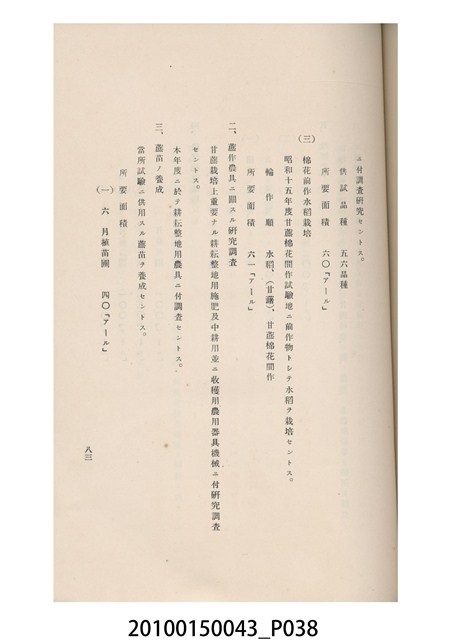 ニ付調査研究セントス。
供試品種　五六品種
所要面積　六〇「アール」
(三)　棉花前作水稻栽培
昭和十五年度甘蔗棉花間作試驗地ニ前作物トシテ水稻ヲ栽培セントス。
輪作順　水稻、(甘藷)、甘蔗棉花間作
所要面積　六一「アール」
二、蔗作農具ニ關スル硏究調査
甘蔗栽培上重要ナル耕耘整地用施肥及中耕用並ニ收穫用農用器具機械ニ付硏究調査
セントス。
本年度ニ於テ耕耘整地用農具ニ付調査セントス。
三、蔗苗ノ養成
當所試驗ニ供用スル蔗苗ヲ養成セントス。
所要面積
(一)　六月植苗圃　四〇「アール」
八三
20100150043_P038